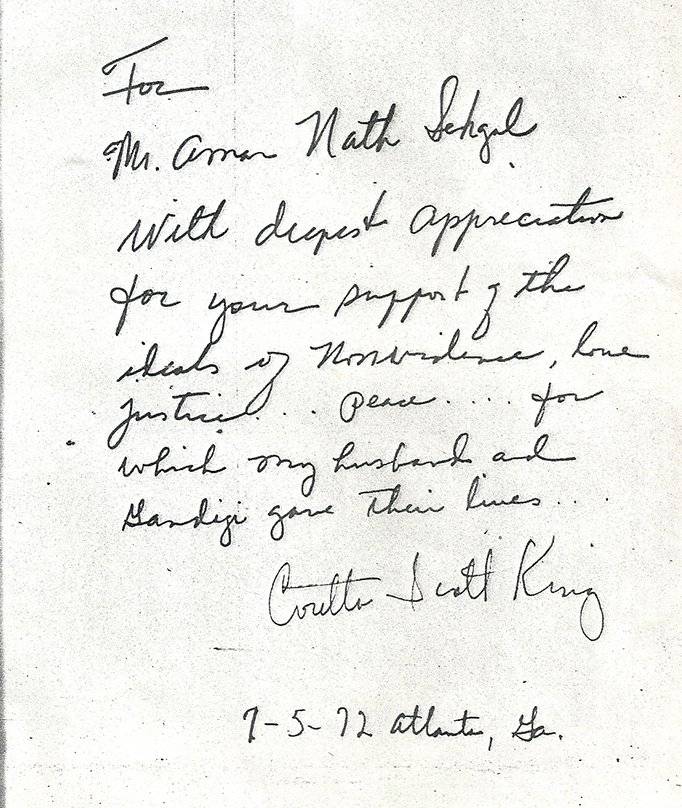 For
Mr. Amar Nath Sehgal
With deepest appreciation
for your support of the
ideals of Nonviolence, love
Justice... peace.... for
which my husband and
Gandiji gave their lives...
Coretta Scott King
7-5-72 Atlanta, Ga.